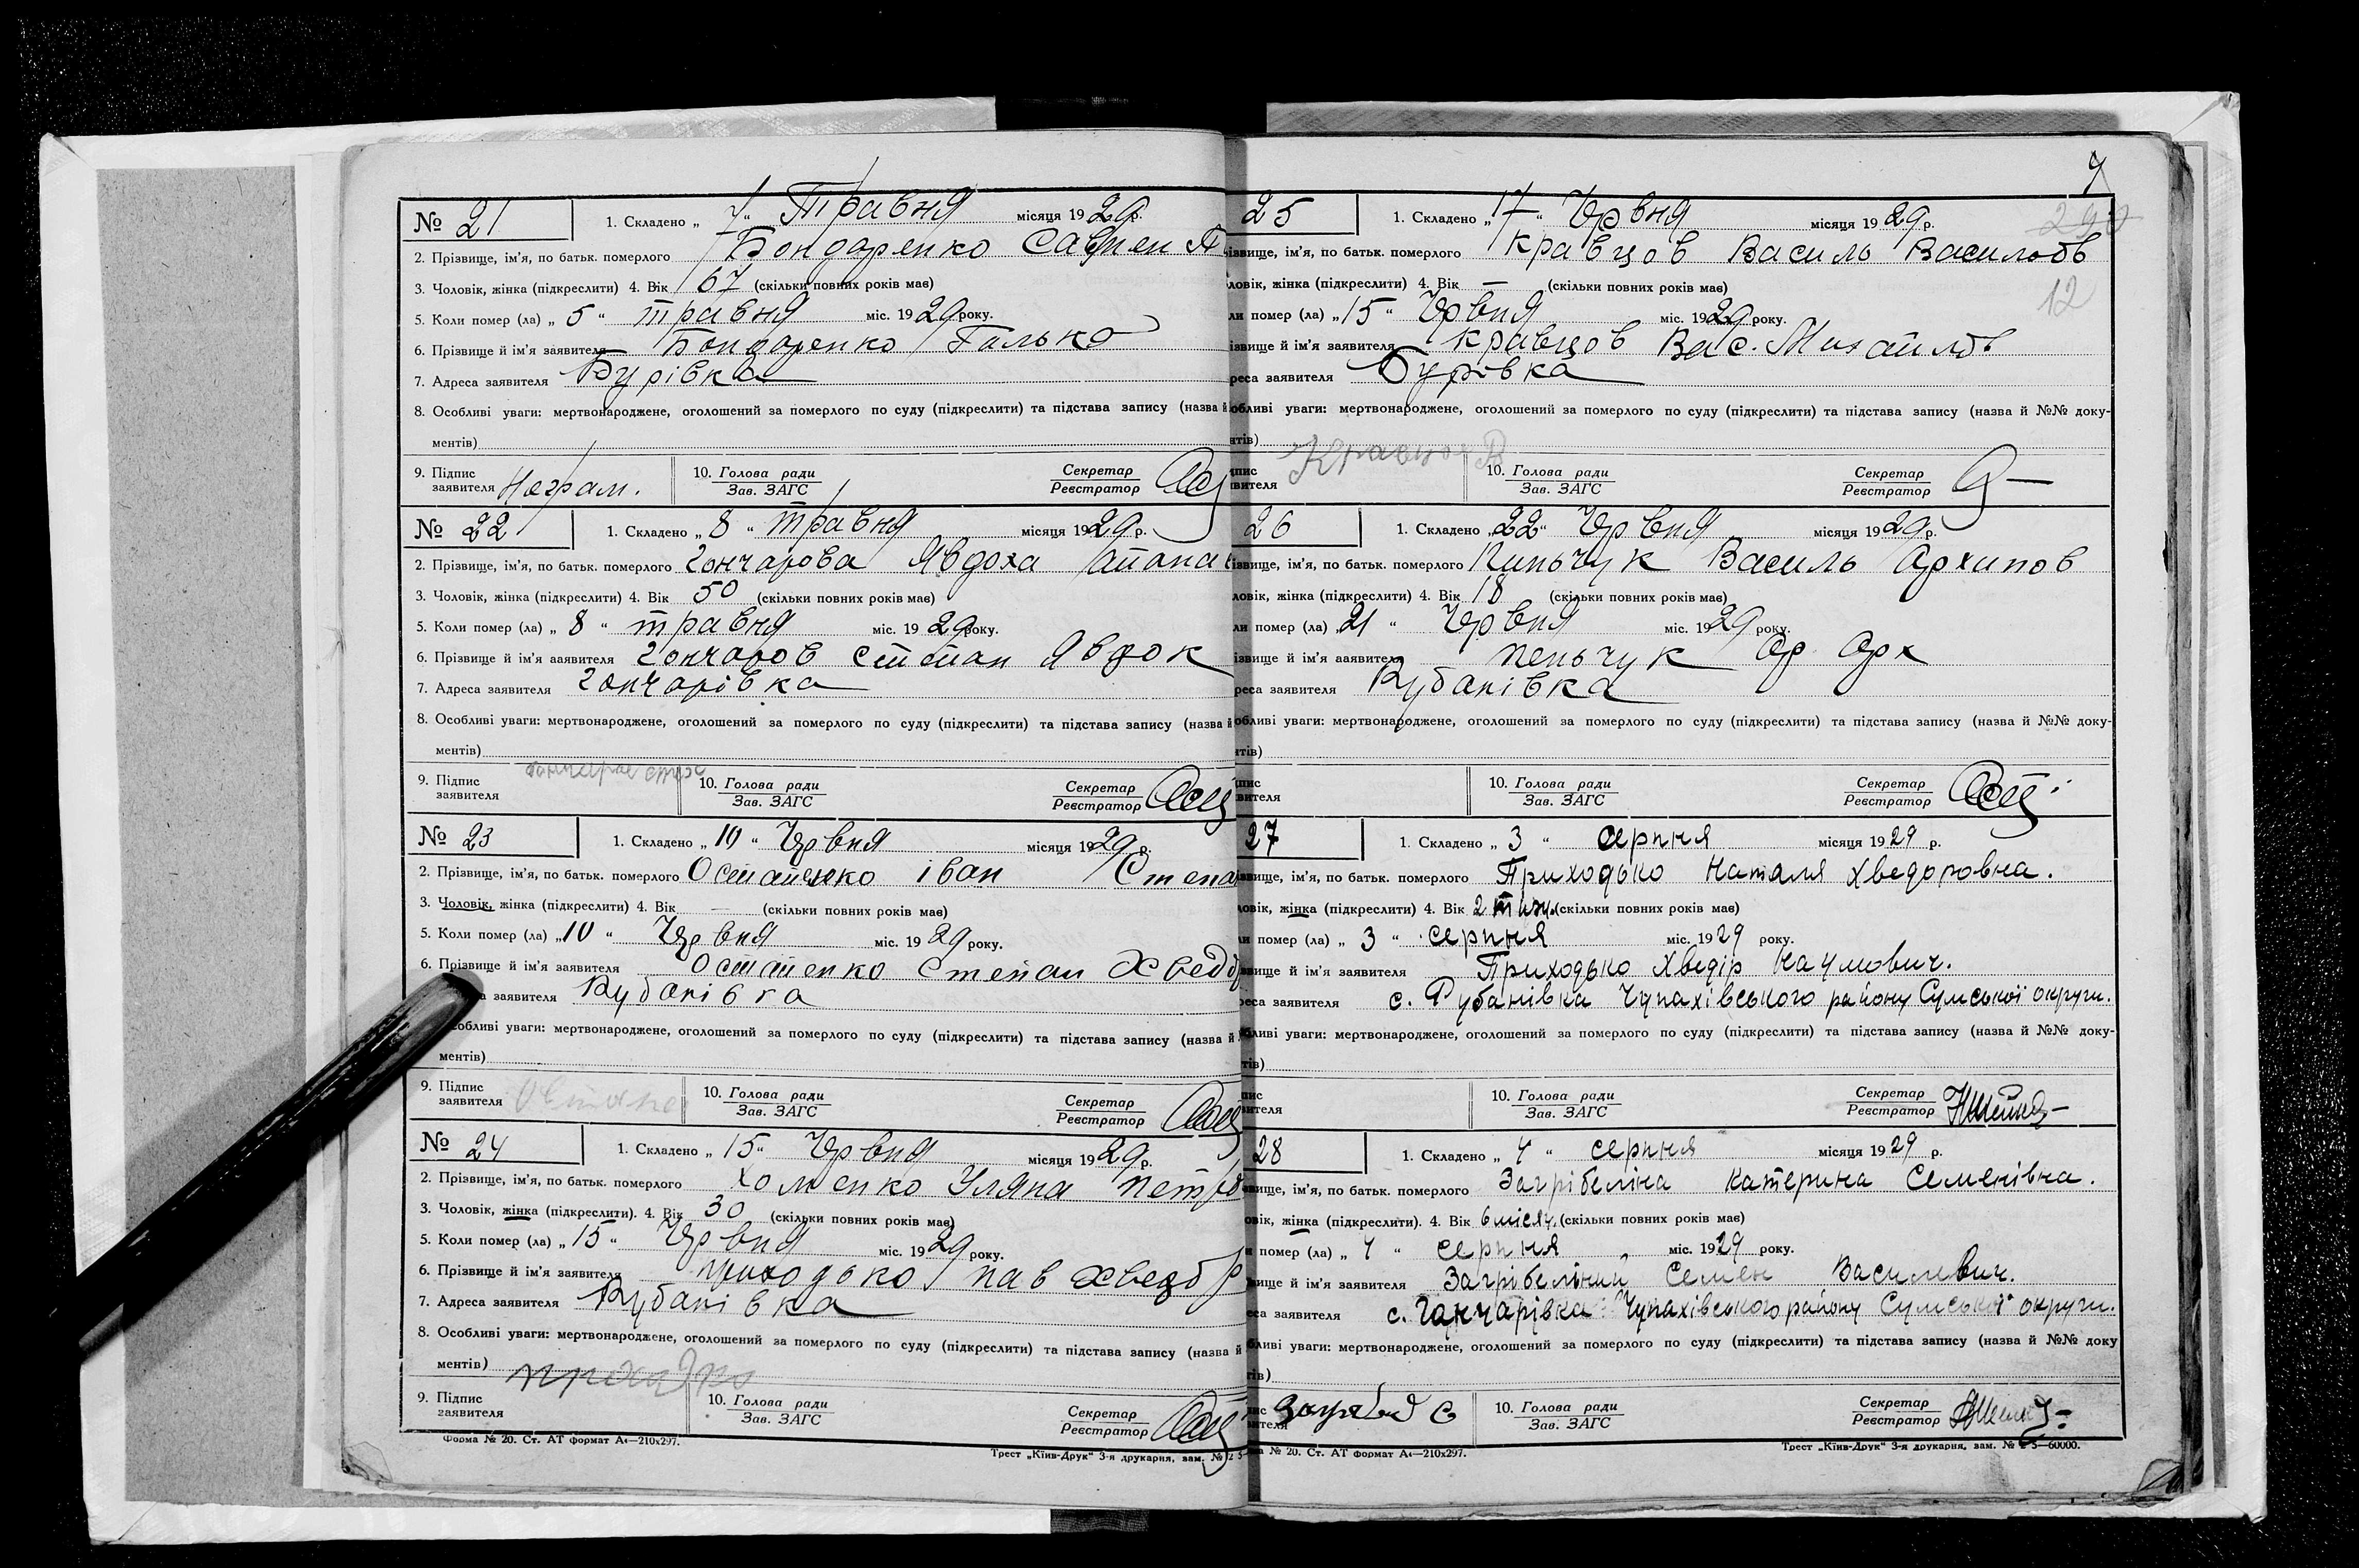 № 21 1. Складено „ 7 “ Травня місяця 1929 р.
2. Прізвище, ім'я, по батьк. померлого Бондаренко
3. Чоловік, жінка (підкреслити) 4. Вік 67 (скільки повних років має)
5. Коли помер (ла) „ 5 “ травня міс. 1929 року.
6. Прізвище й ім'я заявителя Бондаренко Галька
7. Адреса заявителя Бурівка
8. Особливі уваги: мертвонароджене, оголошений за померлого по суду (підкреслити) та підстава запису (назва й
ментів)
9. Підпис заявителя Неграм. 10. Голова ради Зав. ЗАГС Секретар Реєстратор
№ 22 1. Складено „ 8 “ травня місяця 1929 р.
2. Прізвище, ім'я, по батьк. померлого Гончарова Явдоха
3. Чоловік, жінка (підкреслити) 4. Вік 50 (скільки повних років має)
5. Коли помер (ла) „ 8 “ травня міс. 1929 року.
6. Прізвище й ім'я заявителя Гончаров Степан Явдок
7. Адреса заявителя Гончарівка
8. Особливі уваги: мертвонароджене, оголошений за померлого по суду (підкреслити) та підстава запису (назва й
ментів)
9. Підпис заявителя 10. Голова ради Зав. ЗАГС Секретар Реєстратор
№ 23 1. Складено „ 10 “ Чрвня місяця 1929 р.
2. Прізвище, ім'я, по батьк. померлого Остапенко іван Степа
3. Чоловік, жінка (підкреслити) 4. Вік — (скільки повних років має)
5. Коли помер (ла) „ 10 “ Чрвня міс. 1929 року.
6. Прізвище й ім'я заявителя Остапенко Степан
заявителя
собливі уваги: мертвонароджене, оголошений за померлого по суду (підкреслити) та підстава запису (назва й
ментів)
9. Підпис заявителя 10. Голова ради Зав. ЗАГС Секретар Реєстратор
№ 24 1. Складено „ 15 “ Чрвня місяця 1929 р.
2. Прізвище, ім'я, по батьк. померлого Хоменко Уляна Петр
3. Чоловік, жінка (підкреслити). 4. Вік 30 (скільки повних років має)
5. Коли помер (ла) „ 15 “ Чрвня міс. 1929 року.
6. Прізвище й ім'я заявителя приходько пав
7. Адреса заявителя Рубанівка
8. Особливі уваги: мертвонароджене, оголошений за померлого по суду (підкреслити) та підстава запису (назва й
ментів)
9. Підпис заявителя 10. Голова ради Зав. ЗАГС Секретар Реєстратор
Форма № 20. Ст. АТ формат А4—210х297. Трест „Київ-Друк“ 3-я друкарня, зам. №
25 1. Складено „ 17 “ Чрвня місяця 1929 р.
ізвище, ім'я, по батьк. померлого Кравцов Василь
ловік, жінка (підкреслити) 4. Вік — (скільки повних років має)
12
ли помер (ла) „ 15 “ Чрвня міс. 1929 року.
ізвище й ім'я заявителя Кравцов Вас.
реса заявителя Бурівка
обливі уваги: мертвонароджене, оголошений за померлого по суду (підкреслити) та підстава запису (назва й №№ доку-
нтів)
пис вителя Кравцов В 10. Голова ради Зав. ЗАГС Секретар Реєстратор
26 1. Складено „ 22 “ Чрвня місяця 1929 р.
ізвище, ім'я, по батьк. померлого Василь Архипов
ловік, жінка (підкреслити) 4. Вік 18 (скільки повних років має)
ли помер (ла) „ 21 “ Чрвня міс. 1929 року.
ізвище й ім'я заявителя пеньчук Ар Арх
реса заявителя Рубанівка
обливі уваги: мертвонароджене, оголошений за померлого по суду (підкреслити) та підстава запису (назва й №№ доку-
нтів)
пис вителя 10. Голова ради Зав. ЗАГС Секретар Реєстратор
27 1. Складено „ 3 “ серпня місяця 1929 р.
звище, ім'я, по батьк. померлого Приходько Наталя Хведоровна.
ловік, жінка (підкреслити) 4. Вік 2 тижн. (скільки повних років має)
ли помер (ла) „ 3 “ серпня міс. 1929 року.
звище й ім'я заявителя Приходько Хведір Наумович.
реса заявителя с. Рубанівка Чупахівського району Сумської округи.
бливі уваги: мертвонароджене, оголошений за померлого по суду (підкреслити) та підстава запису (назва й №№ доку-
тів)
пис вителя 10. Голова ради Зав. ЗАГС Секретар Реєстратор
28 1. Складено „ 4 “ серпня місяця 1929 р.
звище, ім'я, по батьк. померлого Загрібеліна Катерина Семенівна.
овік, жінка (підкреслити). 4. Вік 6 місяц. (скільки повних років має)
и помер (ла) „ 4 “ серпня міс. 1929 року.
вище й ім'я заявителя Загрібельний Семен Василевич.
еса заявителя с. Ганчарівка Чупахівського району Сумської округи.
бливі уваги: мертвонароджене, оголошений за померлого по суду (підкреслити) та підстава запису (назва й №№ доку
тів)
пис вителя 10. Голова ради Зав. ЗАГС Секретар Реєстратор
№ 20. Ст. АТ формат А4—210х297. Трест „Київ-Друк“ 3-я друкарня, зам. № 5—60000.